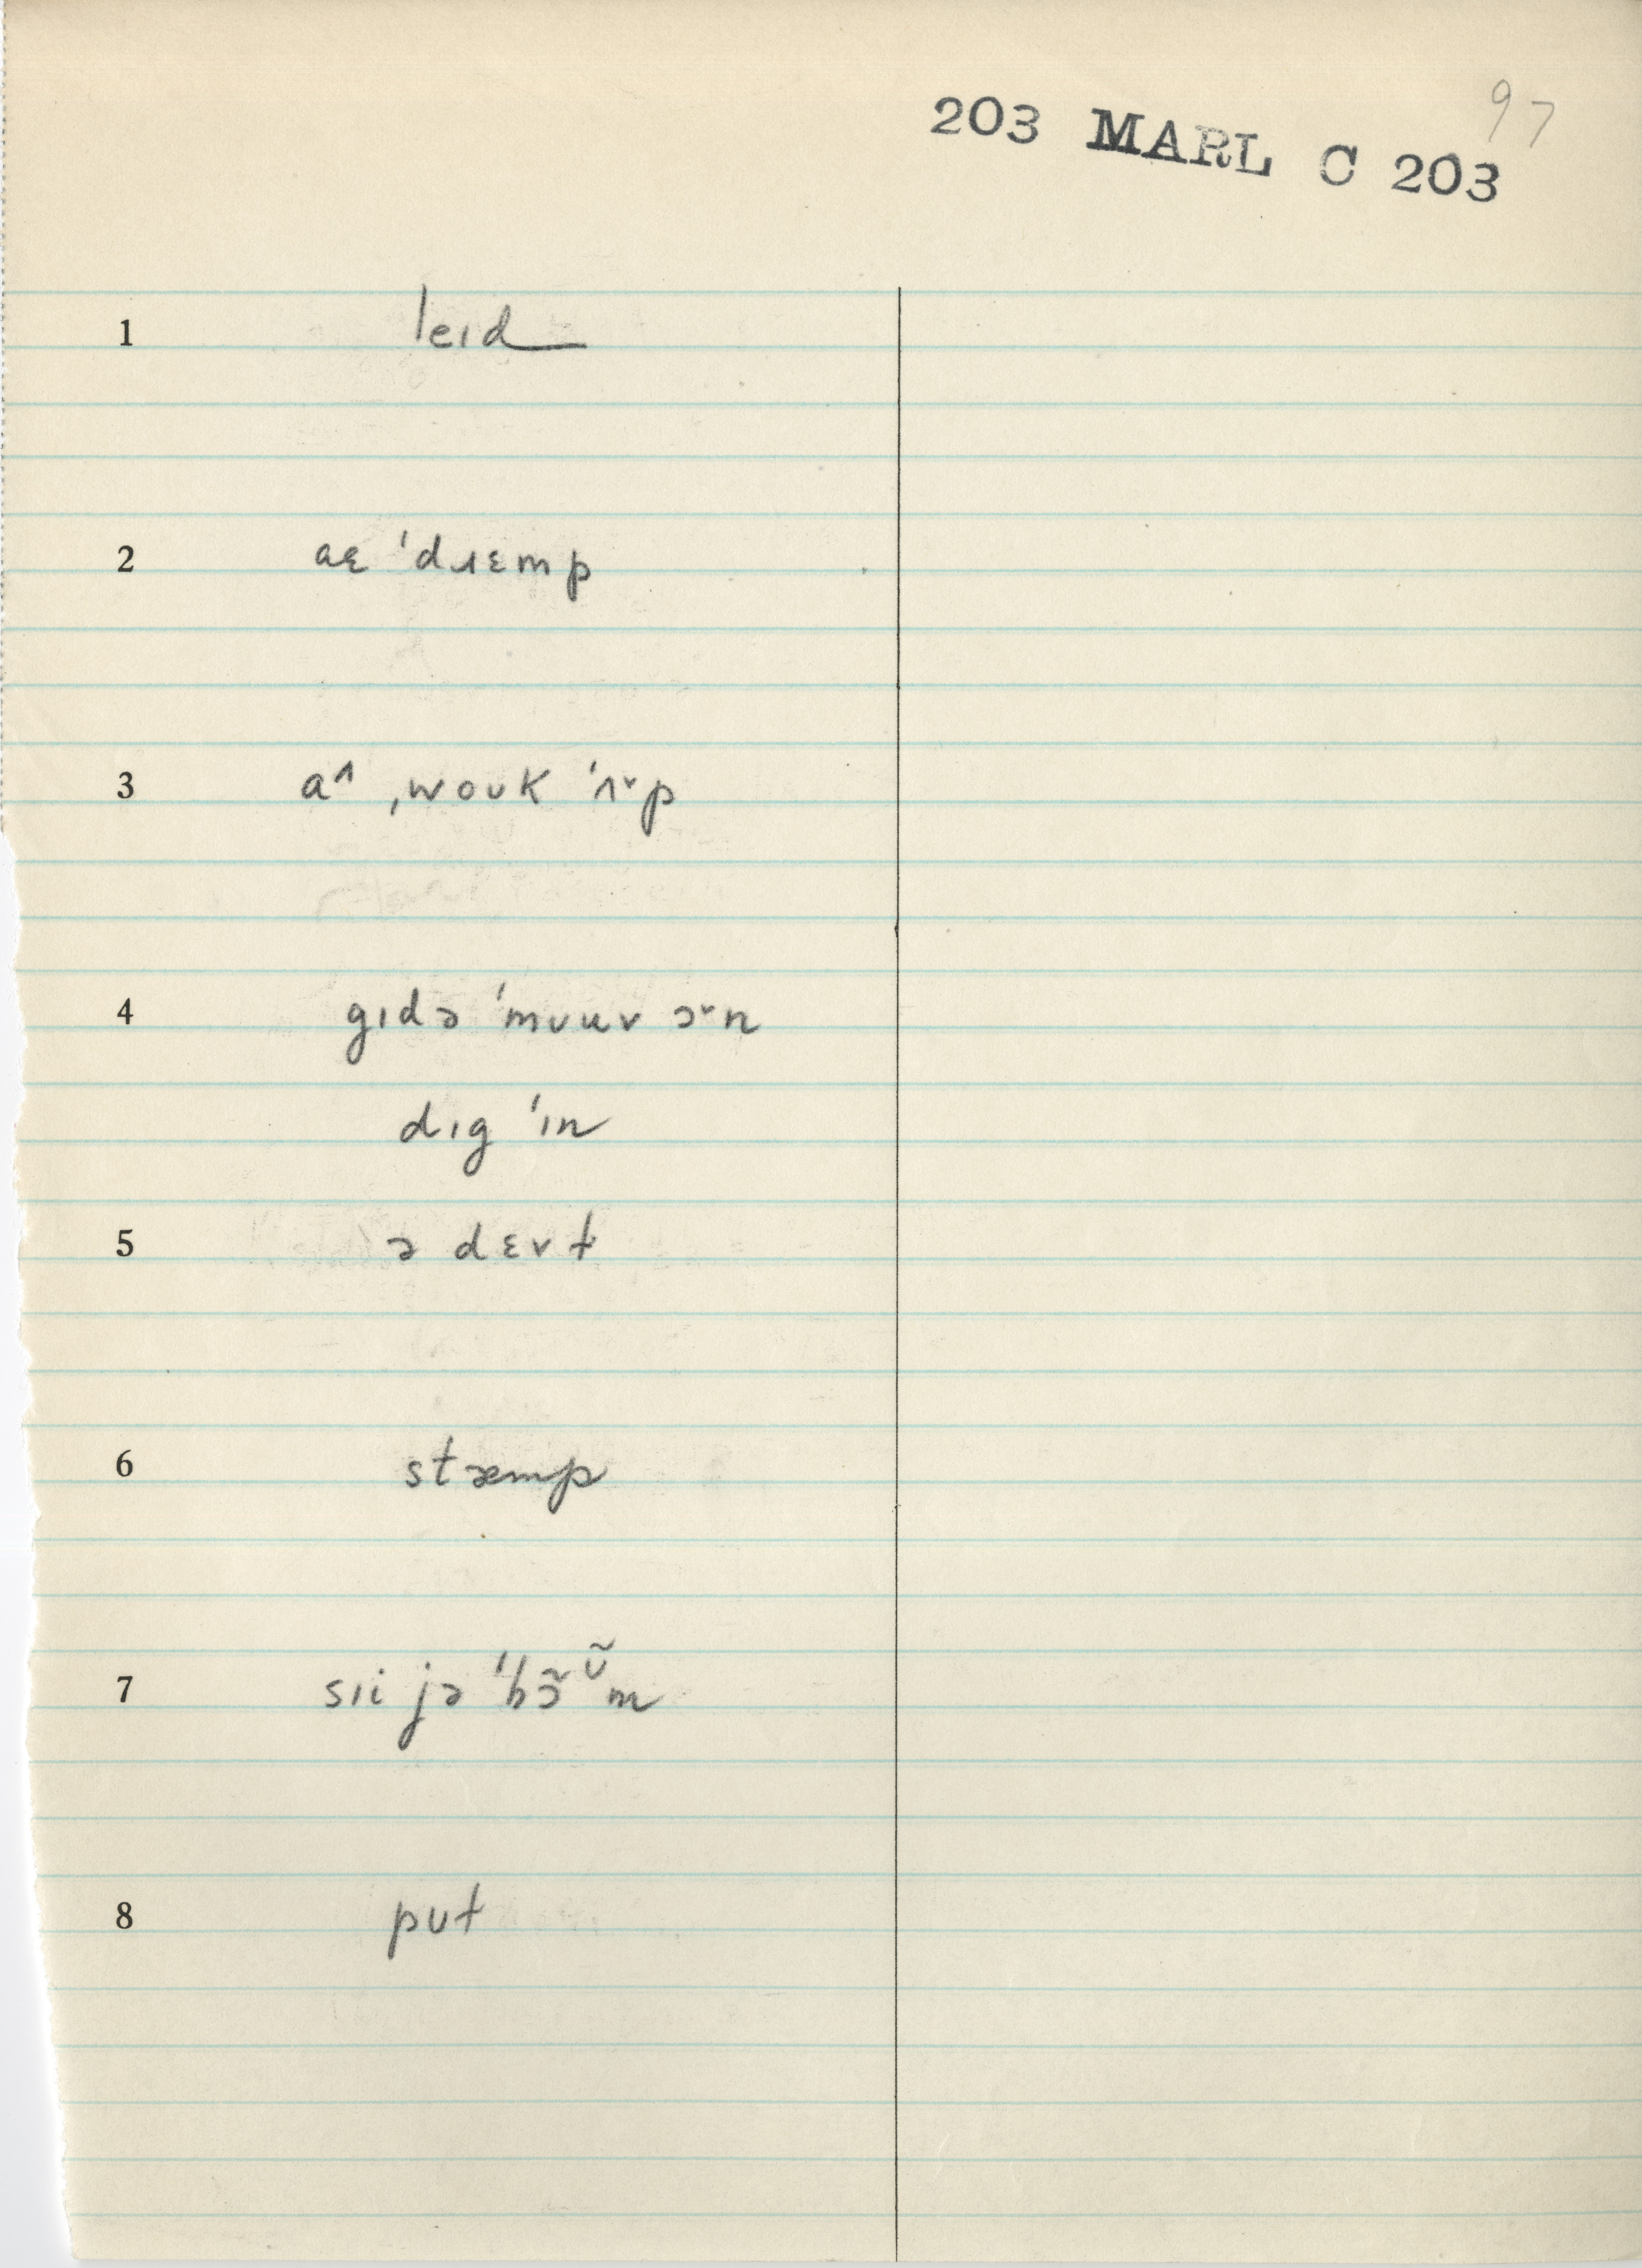 97
203 MARL C 203
1 leɪd
2 aɛ ˈdɹɛmp
3 a˄ ˌwoʊk ˈʌ˅p
4 gɪdə ˈmʊuv ə˅n
dɪg ˈɪn
5 ə dɛvt
6 stæmp
7 sɪi jə ˈbɔ̃ʊ̃m
8 pʊt